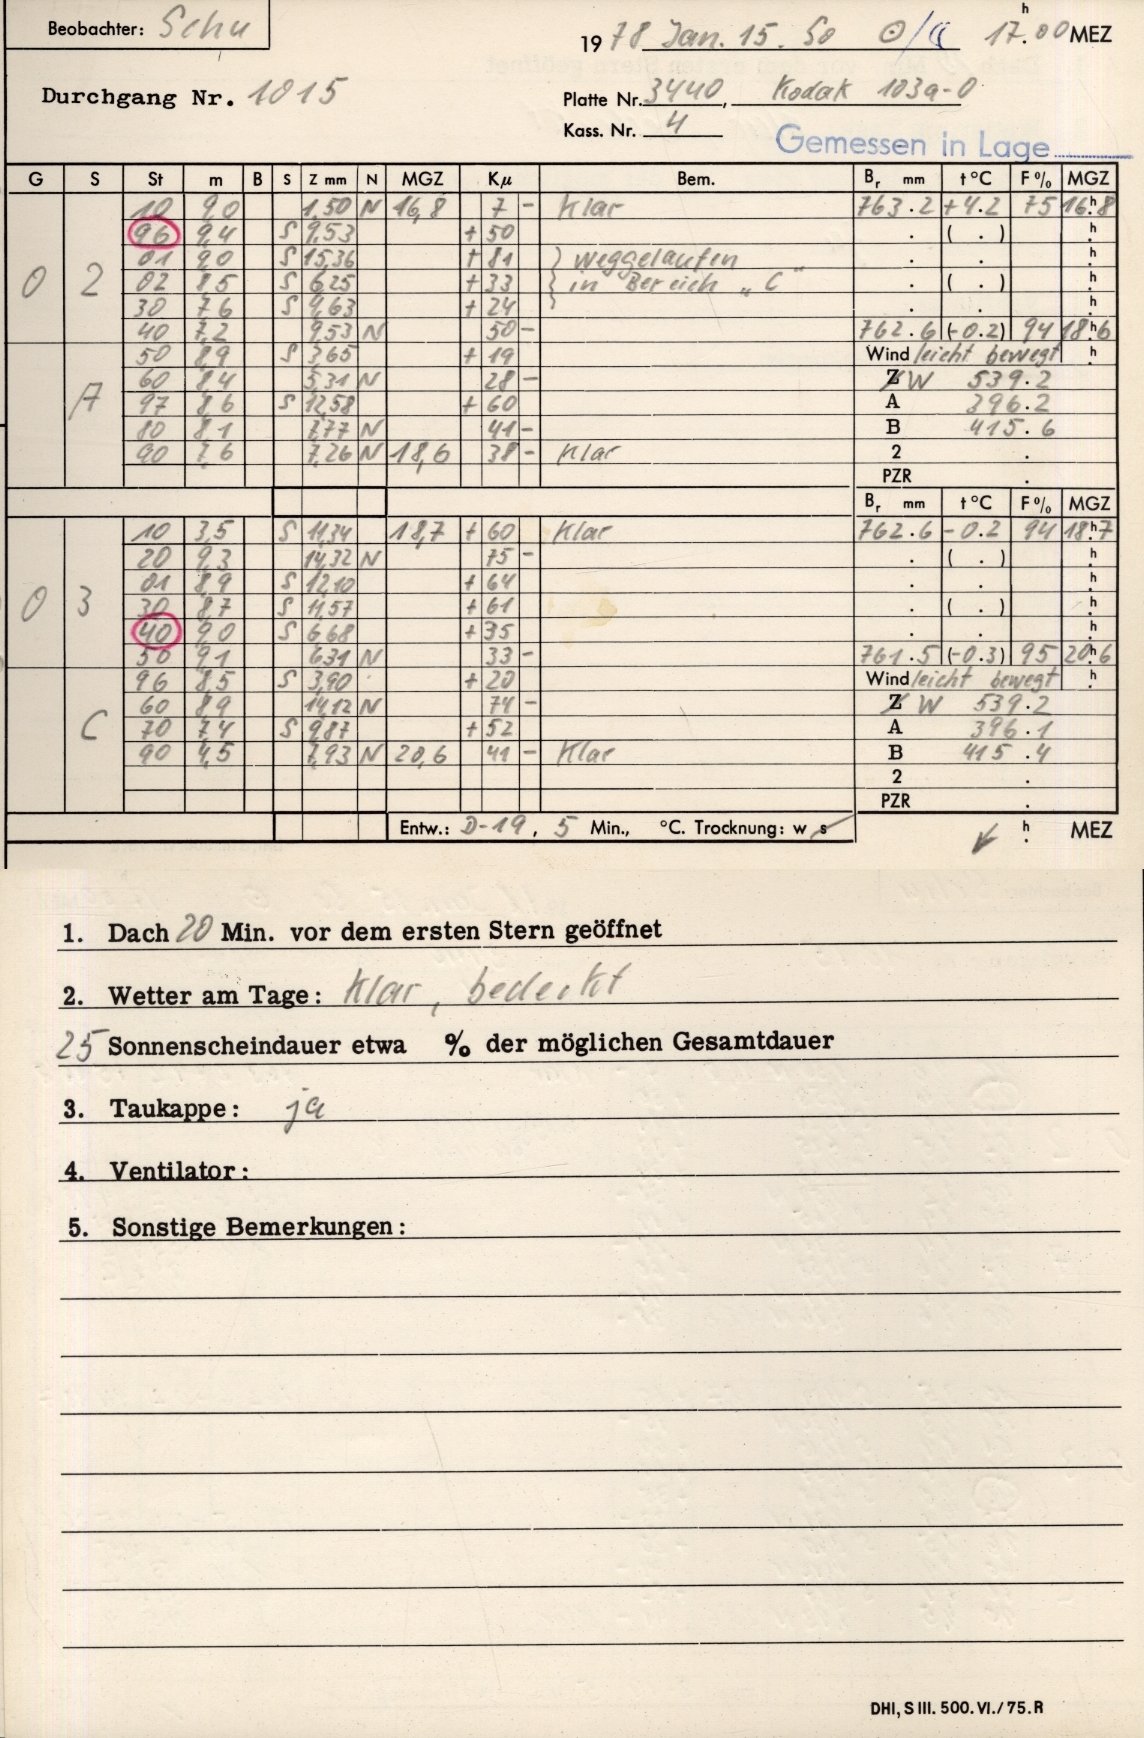 Beobachter: Schu
1978 Jan. 15. So ⊙/☾ 17.ʰ00 MEZ
Durchgang Nr. 1015
Platte Nr. 3440, Kodak 103a-O
Kass. Nr. 4
Gemessen in Lage
G S St m B S Z mm N MGZ Kμ Bem. Bᵣ mm t°C F% MGZ
10 9,0 1,50 N 16,8 7 - Klar 763.2 +4.2 75 16ʰ.8
96 9,4 S 9,53 +50 . ( . ) ʰ.
01 9,0 S 15,36 +81 } weggelaufen . . ʰ.
02 02 8,5 S 6,25 +33 } in Bereich „C" . ( . ) ʰ.
30 7,6 S 4,63 +24 . . ʰ.
40 7,2 9,53 N 50 - 762.6 (-0.2) 94 18ʰ.6
50 8,9 S 3,65 +19 Wind leicht bewegt ʰ
60 8,4 5,31 N 28 - Z W 539.2
A 97 8,6 S 12,58 +60 A 396.2
80 8,1 7,77 N 41 - B 415.6
90 7,6 7,26 N 18,6 38 - Klar 2 .
PZR .
Bᵣ mm t°C F% MGZ
10 3,5 S 11,34 18,7 +60 Klar 762.6 -0.2 94 18ʰ.7
20 9,3 14,32 N 75 - . ( . ) ʰ.
01 8,9 S 12,10 +64 . . ʰ.
03 30 8,7 S 11,57 +61 . ( . ) ʰ.
40 9,0 S 6,68 +35 . . ʰ.
50 9,1 6,31 N 33 - 761.5 (-0.3) 95 20ʰ.6
96 8,5 S 3,90 +20 Wind leicht bewegt ʰ.
60 8,9 14,12 N 74 - Z W 539.2
C 70 7,4 S 9,87 +52 A 396.1
90 4,5 7,93 N 20,6 41 - Klar B 415.4
2 .
PZR .
Entw.: D-19, 5 Min., °C. Trocknung: w s ʰ. MEZ
1. Dach 20 Min. vor dem ersten Stern geöffnet
2. Wetter am Tage: Klar, bedeckt
25 Sonnenscheindauer etwa % der möglichen Gesamtdauer
3. Taukappe: ja
4. Ventilator:
5. Sonstige Bemerkungen:
DHI, S III. 500. VI./75. R